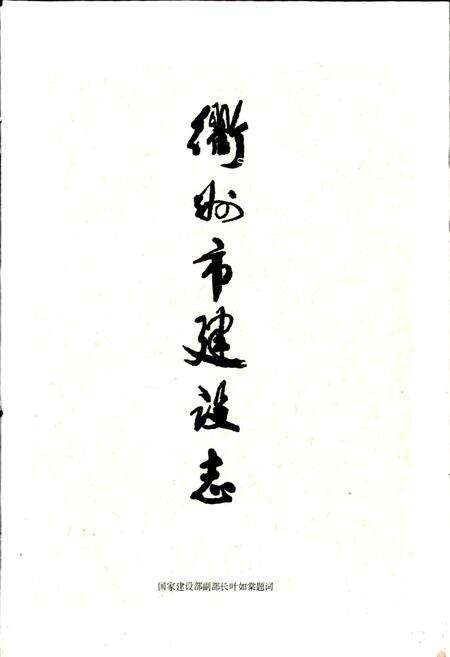 衢州市建设志
国家建设部副部长叶如棠题词